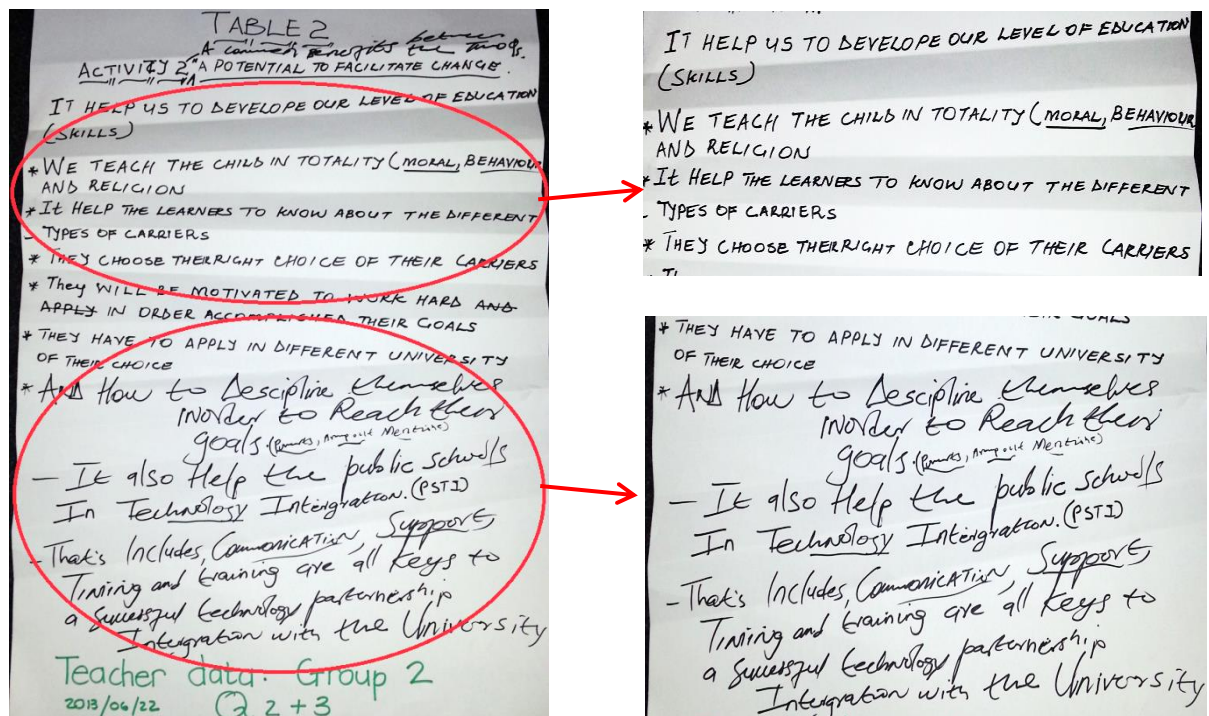 TABLE 2
A common benefits between
the two gs.
ACTIVITY 2 "A POTENTIAL TO FACILITATE CHANGE.
IT HELP US TO DEVELOPE OUR LEVEL OF EDUCATION
(SKILLS)
* WE TEACH THE CHILD IN TOTALITY (MORAL, BEHAVIOUR
AND RELIGION
* It HELP THE LEARNERS TO KNOW ABOUT THE DIFFERENT
- TYPES OF CARRIERS
* THEY CHOOSE THERRIGHT CHOICE OF THEIR CARRIERS
* They WILL BE MOTIVATED TO WORK HARD AND
APPLY IN ORDER ACCOMPLISHED THEIR GOALS
* THEY HAVE TO APPLY IN DIFFERENT UNIVERSITY
OF THEIR CHOICE
* AND How to Descipline themselves
inorder to Reach their
goals. (Parents,
- It also Help the public schools
In Technology Intergration. (PSTI)
- That's Includes, Communication, Support,
Timing and training are all Keys to
a successful technology parternership
Intergration with the University
Teacher data: Group 2
2013/06/22 Q 2 + 3
IT HELP US TO DEVELOPE OUR LEVEL OF EDUCATION
(SKILLS)
* WE TEACH THE CHILD IN TOTALITY (MORAL, BEHAVIOUR
AND RELIGION
* It HELP THE LEARNERS TO KNOW ABOUT THE DIFFERENT
- TYPES OF CARRIERS
* THEY CHOOSE THERRIGHT CHOICE OF THEIR CARRIERS
GOALS
* THEY HAVE TO APPLY IN DIFFERENT UNIVERSITY
OF THEIR CHOICE
* AND How to Descipline themselves
inorder to Reach their
goals. (Parents,
- It also Help the public schools
In Technology Intergration. (PSTI)
- That's Includes, Communication, Support,
Timing and training are all Keys to
a successful technology parternership
Intergration with the University